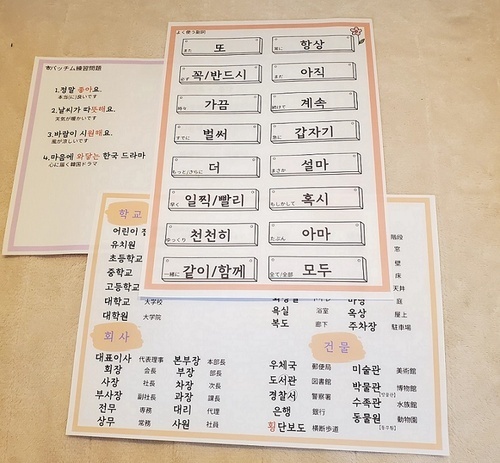 よく使う副詞
또
また
항상
常に
꼭/반드시
必ず
아직
まだ
가끔
時々
계속
続けて
벌써
すでに
갑자기
急に
더
もっと/さらに
설마
まさか
일찍/빨리
早く
혹시
もしかして
천천히
ゆっくり
아마
たぶん
같이/함께
一緒に
모두
全て/全部
パッチム練習問題
1.정말 좋아요.
本当に良いです
2.날씨가 따뜻해요.
天気が暖かいです
3.바람이 시원해요.
風が涼しいです
4.마음에 와닿는 한국 드라마
心に届く韓国ドラマ
학교
어린이
유치원
초등학교
중학교
고등학교
대학교 大学校
대학원 大学院
욕실 浴室
복도 廊下
階段
窓
壁
床
天井
庭
옥상 屋上
주차장 駐車場
회사
대표이사 代表理事
회장 会長
사장 社長
부사장 副社長
전무 専務
상무 常務
본부장 本部長
부장 部長
차장 次長
과장 課長
대리 代理
사원 社員
건물
우체국 郵便局
도서관 図書館
경찰서 警察署
은행 銀行
횡단보도 横断歩道
미술관 美術館
박물관 博物館
수족관 水族館
동물원 動物園